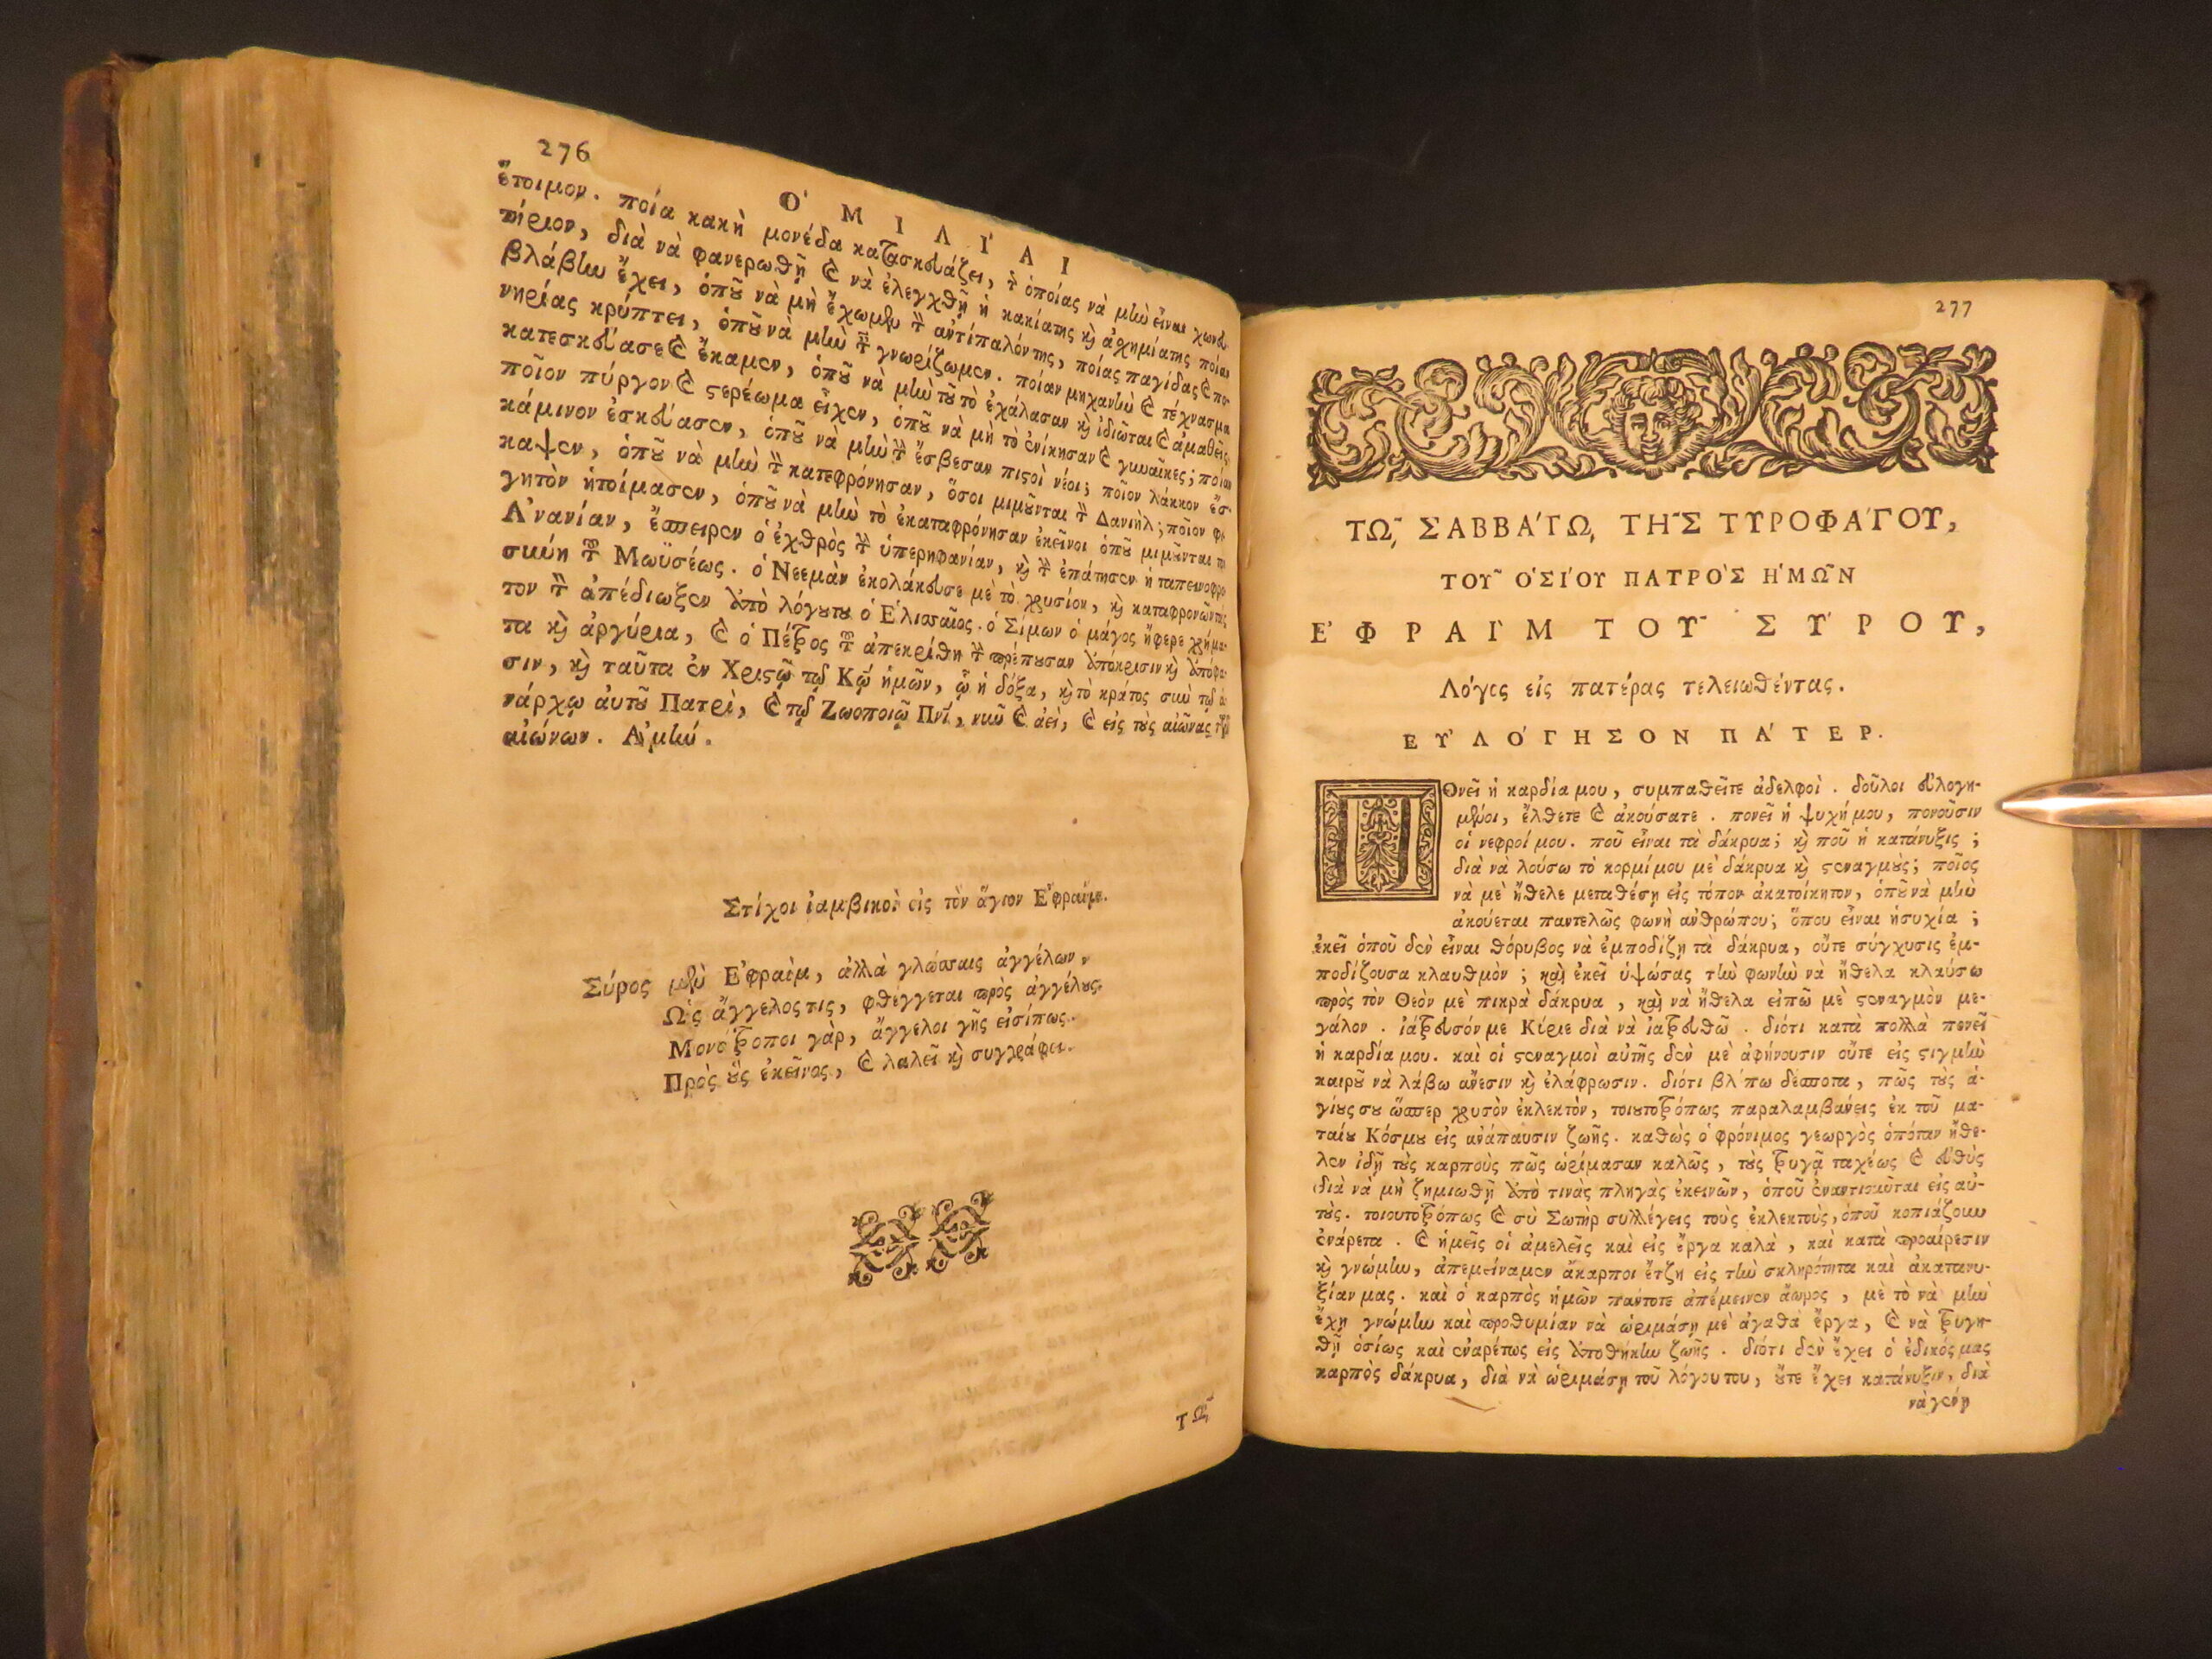 276
Ὁ Μ Ι Λ Ί Α Ι
ἕτοιμον. ποία κακὴ μονέδα κατασκευάζει, τῆς ὁποίας νὰ μὴν εἶναι χωνευ-
τήριον, διὰ νὰ φανερωθῇ καὶ νὰ ἐλεγχθῇ ἡ κακία της καὶ ἀχημία της ποίαν
βλάβην ἔχει, ὁποῦ νὰ μὴ ἔχωμεν τὴν ἀντίπαλόν της, ποίας παγίδας καὶ πο-
νηρίας κρύπτει, ὁποῦ νὰ μὴν τὴν γνωρίζωμεν. ποίαν μηχανὴν καὶ τέχνασμα
κατεσκεύασε καὶ ἔκαμεν, ὁποῦ νὰ μὴν τοῦτο ἐχάλασαν καὶ ἰδιῶται καὶ ἀμαθεῖς
ποῖον πύργον καὶ στερέωμα εἶχεν, ὁποῦ νὰ μὴ τὸ ἐνίκησαν καὶ γυναῖκες; ποίαν
κάμινον ἐσκεύασεν, ὁποῦ νὰ μὴν τὴν ἔσβεσαν πιστοὶ νέοι; ποῖον λάκκον ἔσ-
καψεν, ὁποῦ νὰ μὴν τὴν κατεφρόνησαν, ὅσοι μιμοῦνται τὸν Δανιήλ; ποῖον φα-
γητὸν ἡτοίμασεν, ὁποῦ νὰ μὴν τὸ ἐκαταφρόνησαν ἐκεῖνοι ὁποῦ μιμοῦνται τὸν
Ἀνανίαν, ἔσπειρεν ὁ ἐχθρὸς τὴν ὑπερηφανίαν, καὶ τὴν ἐπάτησεν ἡ ταπεινοφρο-
σύνη τοῦ Μωϋσέως. ὁ Νεεμὰν ἐκολάκευσε μὲ τὸ χρυσίον, καὶ καταφρονῶντάς
τον τὴν ἀπέδιωξεν ἀπὸ λόγου του ὁ Ἐλισσαῖος. ὁ Σίμων ὁ μάγος ἤφερε χρήμα-
τα καὶ ἀργύρια, καὶ ὁ Πέτρος τοῦ ἀπεκρίθη τὴν πρέπουσαν ἀπόκρισιν καὶ ἀπόφα-
σιν, καὶ ταῦτα ἐν Χριστῷ τῷ Κῷ ἡμῶν, ᾧ ἡ δόξα, καὶ τὸ κράτος σὺν τῷ ἀ-
νάρχῳ αὐτοῦ Πατρὶ, καὶ τῷ Ζωοποιῷ Πνΐ, νῦν καὶ ἀεὶ, καὶ εἰς τοὺς αἰῶνας τῶν
αἰώνων. Ἀμήν.
Στίχοι ἰαμβικοὶ εἰς τὸν ἅγιον Ἐφραίμ.
Σύρος μὲν Ἐφραὶμ, ἀλλὰ γλώσσαις ἀγγέλων,
Ὡς ἄγγελος τις, φθέγγεται πρὸς ἀγγέλους.
Μονότροποι γὰρ, ἄγγελοι γῆς εἰσίπως.
Πρὸς οὓς ἐκεῖνος, καὶ λαλεῖ καὶ συγγράφει.
ΤΩῼ͂
277
ΤΩῼ͂ ΣΑΒΒΆΤῼ ΤΗ͂Σ ΤΥΡΟΦΆΓΟΥ,
ΤΟΥ͂ ὉΣΊΟΥ ΠΑΤΡῸΣ ἩΜΩ͂Ν
ἘΦΡΑῒΜ ΤΟΥ͂ ΣΎΡΟΥ,
Λόγος εἰς πατέρας τελειωθέντας.
ΕΥ̓ΛΌΓΗΣΟΝ ΠΆΤΕΡ.
ΠΟνεῖ ἡ καρδία μου, συμπαθεῖτε ἀδελφοὶ. δοῦλοι εὐλογη-
μένοι, ἔλθετε καὶ ἀκούσατε. πονεῖ ἡ ψυχή μου, πονοῦσιν
οἱ νεφροί μου. ποῦ εἶναι τὰ δάκρυα; καὶ ποῦ ἡ κατάνυξις;
διὰ νὰ λούσω τὸ κορμί μου μὲ δάκρυα καὶ στεναγμοὺς; ποῖος
νὰ μὲ ἤθελε μεταθέση εἰς τόπον ἀκατοίκητον, ὁποῦ νὰ μὴν
ἀκούεται παντελῶς φωνὴ ἀνθρώπου; ὅπου εἶναι ἡσυχία;
ἐκεῖ ὁποῦ δὲν εἶναι θόρυβος νὰ ἐμποδίζη τὰ δάκρυα, οὔτε σύγχυσις ἐμ-
ποδίζουσα κλαυθμὸν; καὶ ἐκεῖ ὑψώσας τὴν φωνὴν νὰ ἤθελα κλαύσω
πρὸς τὸν Θεὸν μὲ πικρὰ δάκρυα, καὶ νὰ ἤθελα εἰπῶ μὲ στεναγμὸν με-
γάλον. ἰάτρευσόν με Κύριε διὰ νὰ ἰατρευθῶ. διότι κατὰ πολλὰ πονεῖ
ἡ καρδία μου. καὶ οἱ στεναγμοὶ αὐτῆς δὲν μὲ ἀφήνουσιν οὔτε εἰς στιγμὴν
καιροῦ νὰ λάβω ἄνεσιν καὶ ἐλάφρωσιν. διότι βλέπω δέσποτα, πῶς τοὺς ἁ-
γίους σου ὥσπερ χρυσὸν ἐκλεκτὸν, τοιουτοτρόπως παραλαμβάνεις ἐκ τοῦ μα-
ταίου Κόσμου εἰς ἀνάπαυσιν ζωῆς. καθὼς ὁ φρόνιμος γεωργὸς ὁπόταν ἤθε-
λεν ἰδῇ τοὺς καρποὺς πῶς ὡρίμασαν καλῶς, τοὺς τρυγᾷ ταχέως καὶ εὐθὺς
διὰ νὰ μὴ ζημιωθῇ ἀπὸ τινὰς πληγὰς ἐκεινῶν, ὁποῦ ἐναντιοῦται εἰς αὐ-
τούς. τοιουτοτρόπως καὶ σὺ Σωτὴρ συλλέγεις τοὺς ἐκλεκτοὺς, ὁποῦ κοπιάζουν
ἐνάρετα. καὶ ἡμεῖς οἱ ἀμελεῖς καὶ εἰς ἔργα καλὰ, καὶ κατὰ προαίρεσιν
καὶ γνώμην, ἀπεμείναμεν ἄκαρποι ἔτζη εἰς τὴν σκληρότητα καὶ ἀκατανυ-
ξίαν μας. καὶ ὁ καρπὸς ἡμῶν πάντοτε ἀπέμεινεν ἄωρος, μὲ τὸ νὰ μὴν
ἔχῃ γνώμην καὶ προθυμίαν νὰ ὡριμάσῃ μὲ ἀγαθὰ ἔργα, καὶ νὰ τρυγη-
θῇ ὁσίως καὶ ἐναρέτως εἰς ἀποθήκην ζωῆς. διότι δὲν ἔχει ὁ ἐδικός μας
καρπὸς δάκρυα, διὰ νὰ ὡριμάσῃ τοῦ λόγου του, οὔτε ἔχει κατάνυξιν, διὰ
νὰ γένῃ